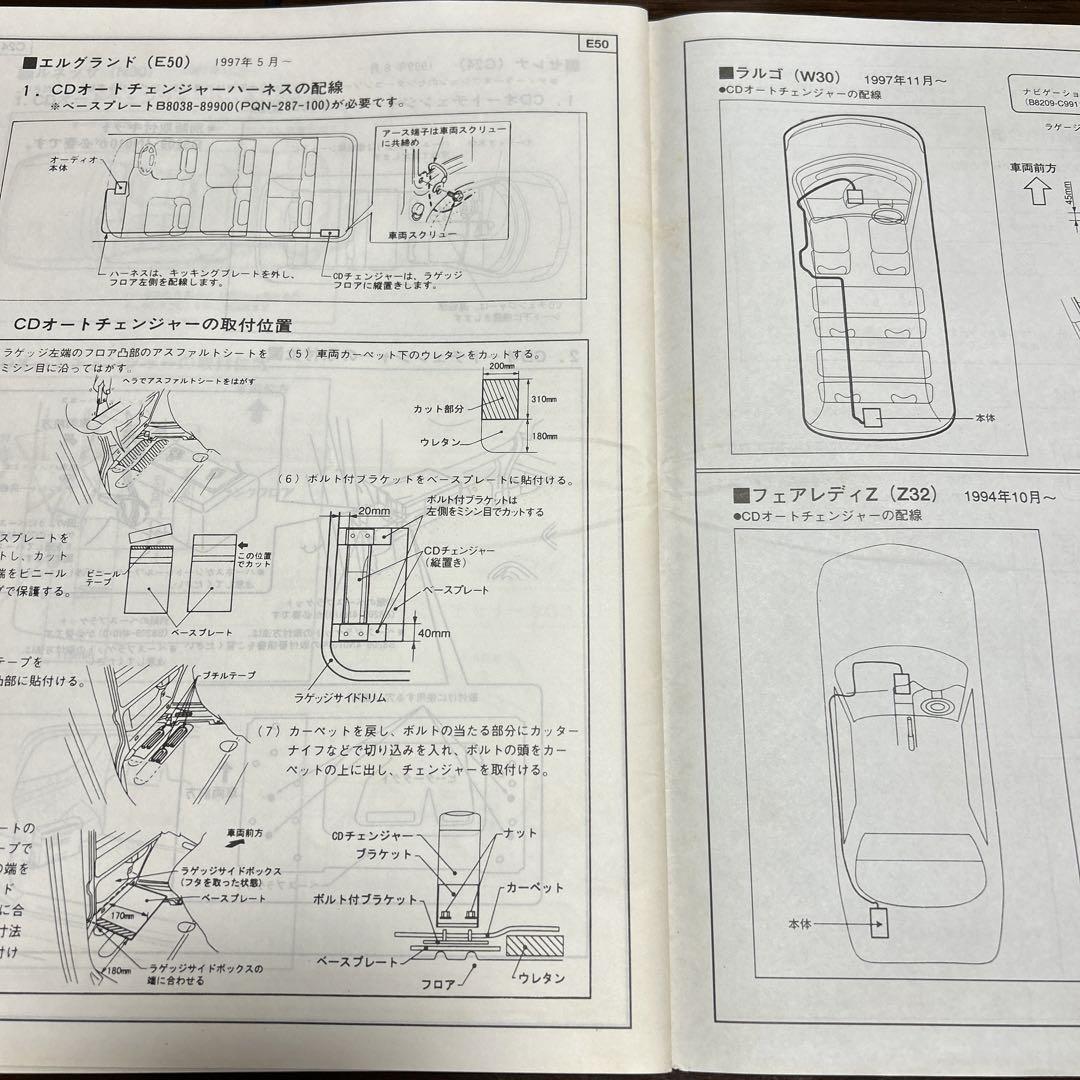 E50
■エルグランド（E50） 1997年5月～
1．CDオートチェンジャーハーネスの配線
※ベースプレートB8038-89900(PQN-287-100)が必要です。
オーディオ
本体
アース端子は車両スクリュー
に共締め
車両スクリュー
ハーネスは、キッキングプレートを外し、
フロア左側を配線します。
CDチェンジャーは、ラゲッジ
フロアに縦置きします。
CDオートチェンジャーの取付位置
ラゲッジ左端のフロア凸部のアスファルトシートを
ミシン目に沿ってはがす。
ヘラでアスファルトシートをはがす
スプレートを
トし、カット
端をビニール
プで保護する。
ビニール
テープ
この位置
でカット
ベースプレート
テープを
凸部に貼付ける。
ブチルテープ
ートの
ープで
の端を
ド
に合
寸法
付け
車両前方
ラゲッジサイドボックス
（フタを取った状態）
ベースプレート
170mm
180mm
ラゲッジサイドボックスの
端に合わせる
（5）車両カーペット下のウレタンをカットする。
200mm
カット部分
310mm
ウレタン
180mm
（6）ボルト付ブラケットをベースプレートに貼付ける。
ボルト付ブラケットは
左側をミシン目でカットする
20mm
CDチェンジャー
（縦置き）
ベースプレート
40mm
ラゲッジサイドトリム
（7）カーペットを戻し、ボルトの当たる部分にカッター
ナイフなどで切り込みを入れ、ボルトの頭をカー
ペットの上に出し、チェンジャーを取付ける。
CDチェンジャー
ナット
ブラケット
ボルト付ブラケット
カーペット
ベースプレート
フロア
ウレタン
■ラルゴ（W30） 1997年11月～
●CDオートチェンジャーの配線
本体
ナビゲーショ
(B8209-C991
ラゲージ
車両前方
45mm
■フェアレディZ（Z32） 1994年10月～
●CDオートチェンジャーの配線
本体